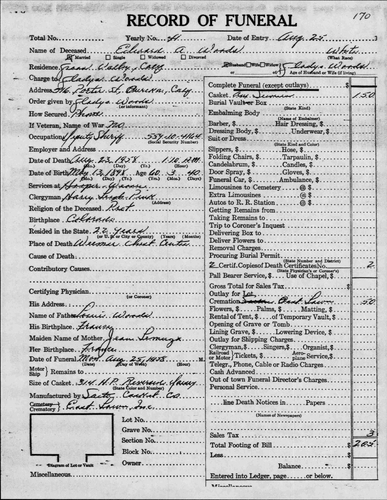 170
RECORD OF FUNERAL
Total No. Yearly No. 41 Date of Entry Aug. 25,
Name of Deceased Edward A. Woods White
Married Single Widowed Divorced (What Race)
Residence Grass Valley, Calif Husband or Wife of Gladys Woods
Age of Husband or Wife (if living)
Charge to Gladys Woods
Address Porter St.
Order given by Gladys Woods
(or informant)
How Secured Phone
If Veteran, Name of War No
Occupation Deputy Sheriff
(Social Security Number)
Employer and Address
Date of Death Aug. 23, 1958. 1:10 A.M.
Date of Birth May 13, 1898 Age 60 3 40
Services at Hooper
Clergyman Harry
(Address)
Religion of the Deceased Prot
Birthplace Colorado
Resided in the State 22 years
Place of Death Weimar Chest Center
Cause of Death
Contributory Causes
Certifying Physician
(or Coroner)
His Address
Name of Father Louis Woods
His Birthplace France
Maiden Name of Mother Jean
Her Birthplace France
Date of Funeral Mon. Aug. 25, 1958 M.
Motor
Ship Remains to
Size of Casket
Manufactured by Casket Co.
Cemetery
Crematory East Lawn, Inc.
Lot No.
Grave No.
Section No.
Block No.
Owner
Diagram of Lot or Vault
Miscellaneous
Complete Funeral (except outlays)
Casket 150
Burial Vault or Box
(State Kind)
Embalming Body
(Name of Embalmer)
Barber, $ Hair Dressing, $
Dressing Body, $ Underwear, $
Suit or Dress
(State Kind and Color)
Slippers, $ Hose, $
Folding Chairs, $ Tarpaulin, $
Candelabrum, $ Candles, $
Door Spray, $ Gloves, $
Funeral Car, $ Ambulance, $
Limousines to Cemetery @ $
Extra Limousines @ $
Autos to R. R. Station @ $
Getting Remains from
Taking Remains to
Trip to Coroner's Inquest
Delivering Box to
Deliver Flowers to
Removal Charges
Procuring Burial Permit
(State Number and District)
2 Certif. Copies of Death Certificates No. 2
(State Physician's or Coroner's)
Pall Bearer Service, $ Use of Chapel, $
Gross Total for Sales Tax $
Outlay for Lot
Cremation East Lawn 50
Flowers, $ Palms, $ Matting, $
Rental of Tent, $ of Temporary Vault, $
Opening of Grave or Tomb
Lining Grave, $ Lowering Device, $
Outlay for Shipping Charges
Clergyman, $ Singers, $ Organist, $
Railroad or Motor Tickets, $ Aero-plane Service, $
Telegr., Phone, Cable or Radio Charges
Cash Advanced
Out of town Funeral Director's Charges
Personal Service
line Death Notices in Papers
(Names of Newspapers)
Sales Tax 3
Total Footing of Bill $ 205
Less
Balance $
Entered into Ledger, page or below
Miscellaneous